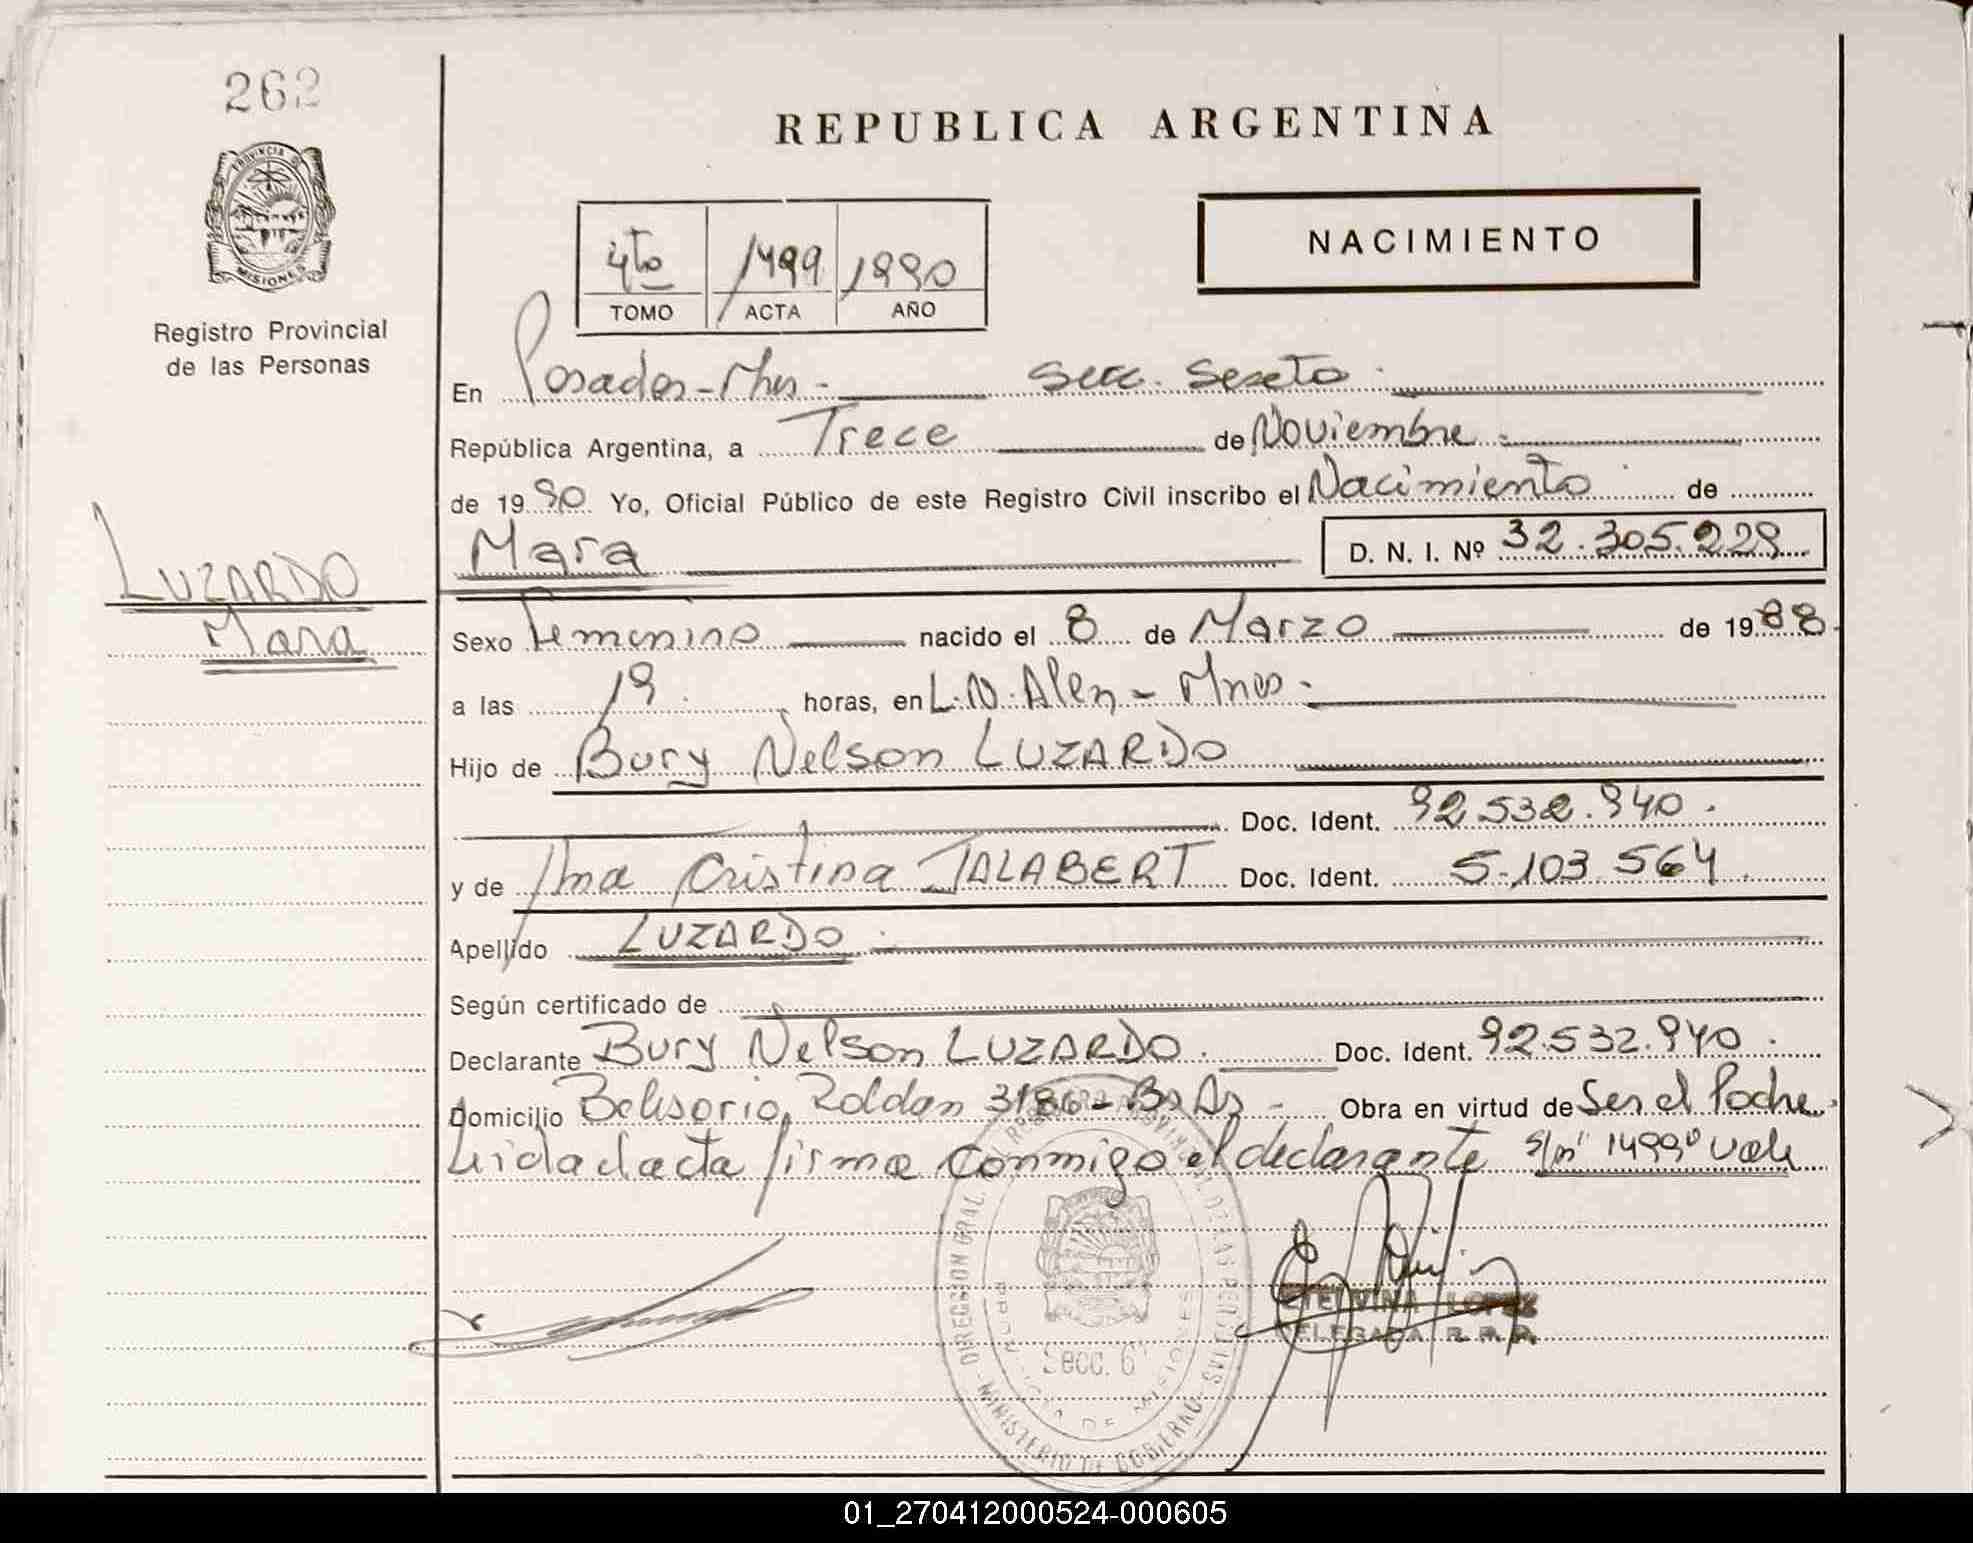 262
PROVINCIA DE
MISIONES
Registro Provincial
de las Personas
LUZARDO
Mara
REPUBLICA ARGENTINA
4to 1499 1990
TOMO ACTA AÑO
NACIMIENTO
En Posadas-Mnes - Secc. Sexto
República Argentina, a Trece de Noviembre
de 1990 Yo, Oficial Público de este Registro Civil inscribo el Nacimiento de
Mara D. N. I. Nº 32.305.229
Sexo Femenino nacido el 8 de Marzo de 1988
a las 19 horas, en L.N. Alen - Mnes -
Hijo de Bury Nelson LUZARDO
Doc. Ident. 92.532.940
y de Ana Cristina JALABERT Doc. Ident. 5.103.564
Apellido LUZARDO
Según certificado de
Declarante Bury Nelson LUZARDO Doc. Ident. 92.532.940
Domicilio Belisario Roldan 3186 - Bs As - Obra en virtud de Ser el Padre
Leida el acta firma conmigo el declarante 1499 vale
DIRECCION GRAL
MINISTERIO DE GOBIERNO
Secc. 6
ETELVINA LOPEZ
DELEGADA R.P.P.
01_270412000524-000605